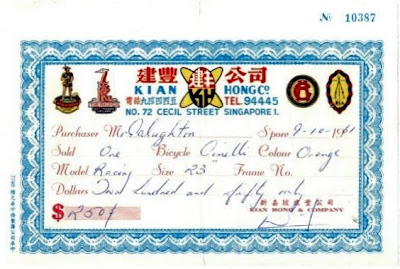 № 10387
建豐 公司
KIAN HONG CO
電話九四四四五 TEL. 94445
NO. 72 CECIL STREET SINGAPORE 1.
Purchaser Mr Naughton S'pore 9-10-1961
Sold One Bicycle Cinelli Colour Orange
Model Racing Size 23" Frame No.
Dollars Two hundred and fifty only
$ 250/
新嘉坡建豐公司
KIAN HONG & COMPANY